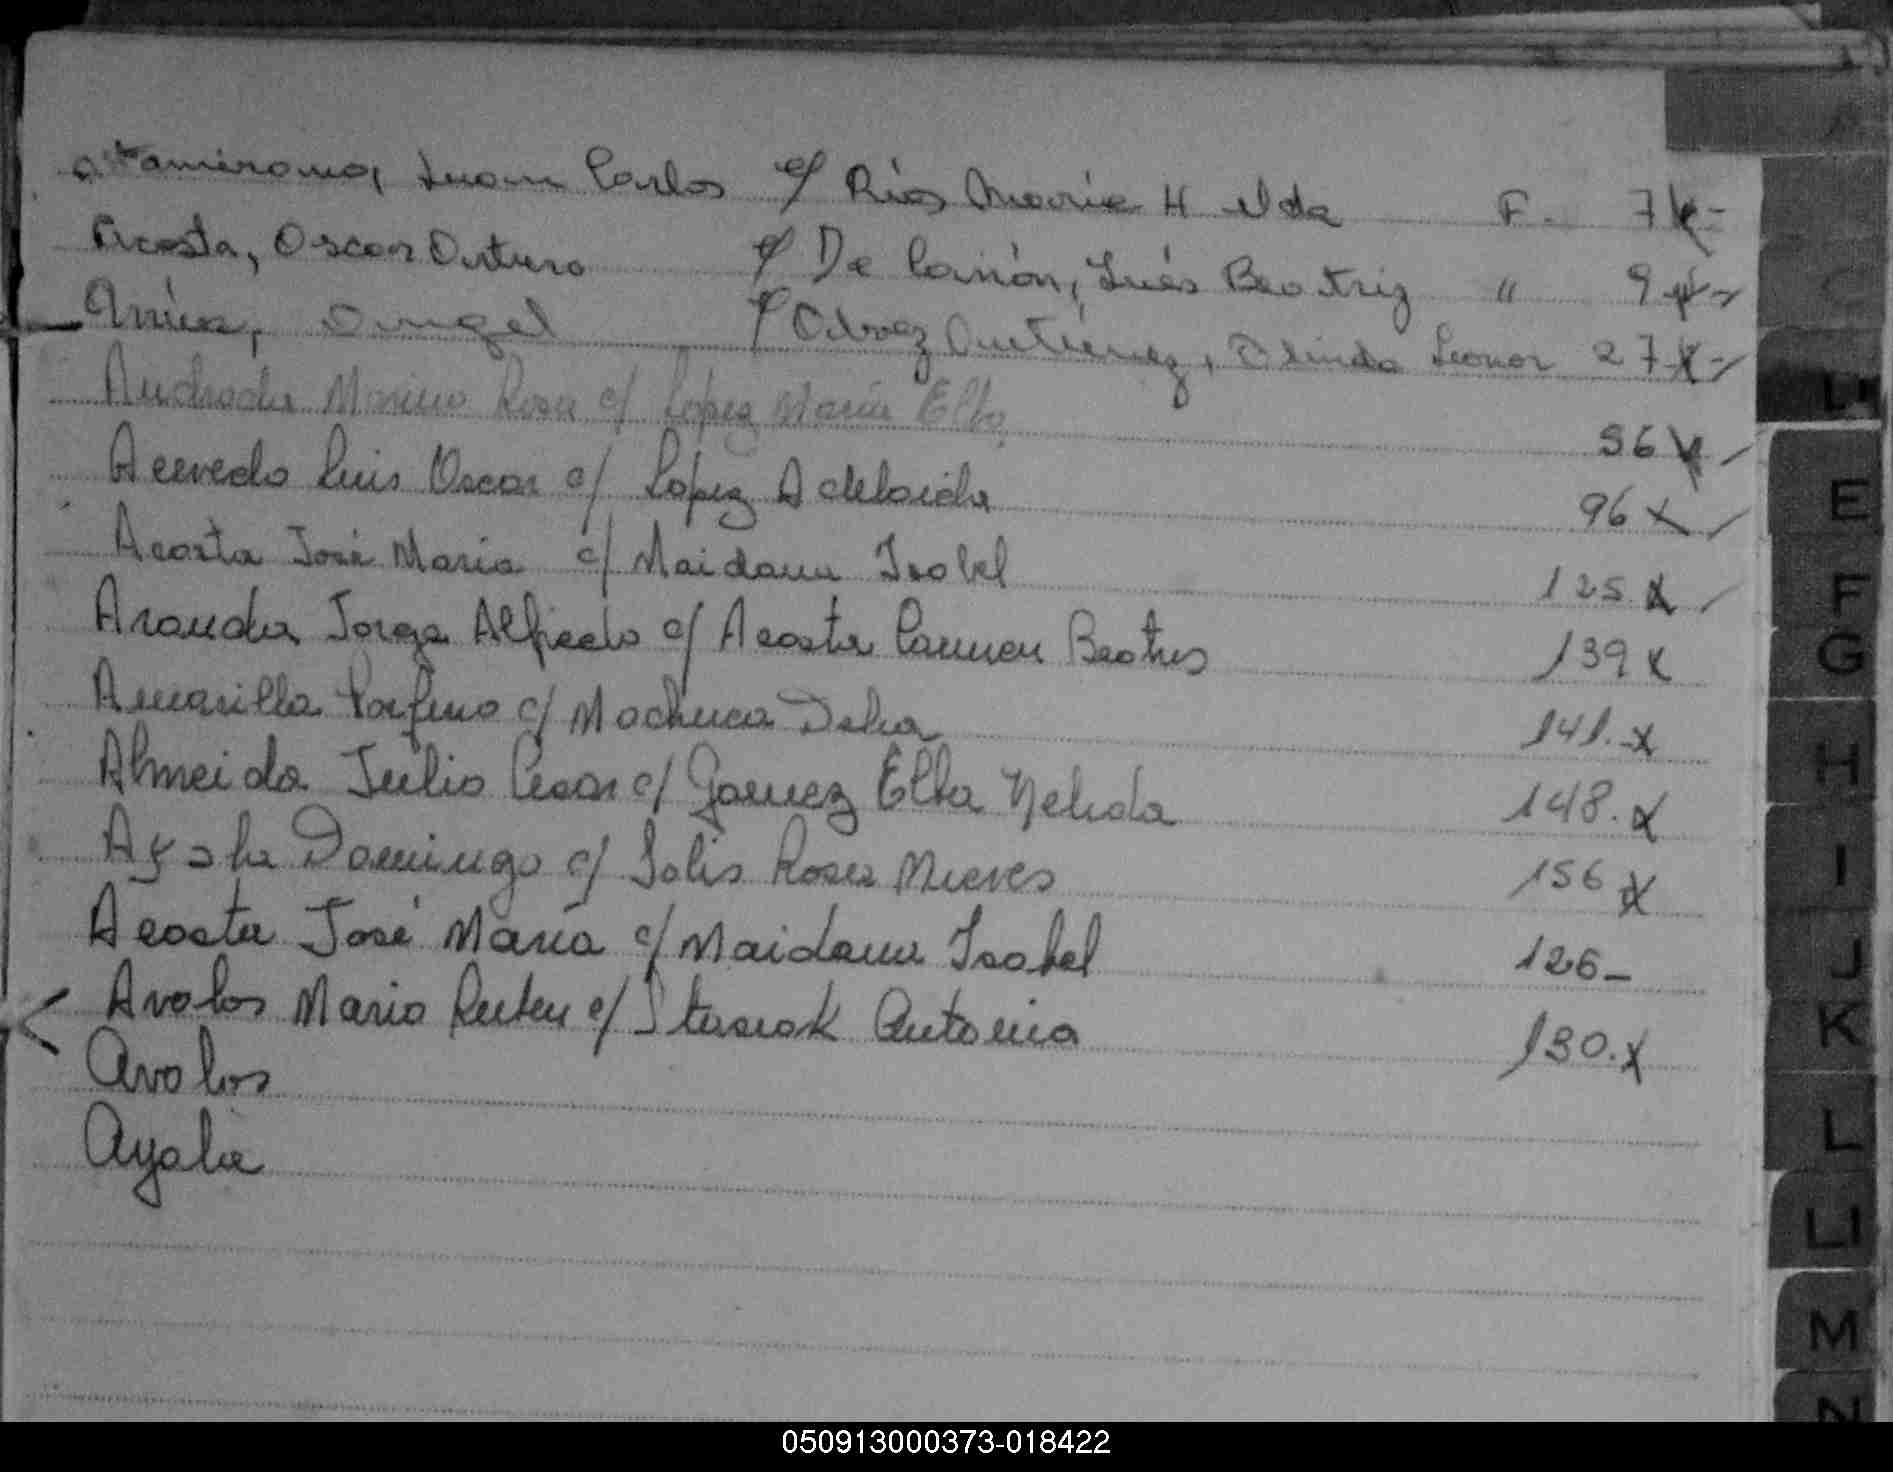 Altamirano, Juan Carlos c/ Rios Maria Hilda F. 7 x-
Acosta, Oscar Arturo c/ De Carrión, Inés Beatriz " 9 x-
Angel c/ Leonor 27 x-
Andrada Marino Rosa c/ Lopez Maria Elba 56 x
Acevedo Luis Oscar c/ Lopez Adelaida 96 x
Acosta José Maria c/ Maidana Isabel 125 x
Aranda Jorge Alfredo c/ Acosta Carmen Beatris 139 x
Amarilla Porfirio c/ Machuca Delia 141.-x
Almeida Julio Cesar c/ Gomez Elba Nelida 148. x
Ayala Domingo c/ Solis Rosa Nieves 156 x
Acosta José María c/ Maidana Isabel 126-
Avalos Mario Ruben c/ Stasiok Antonia 130. x
Avalos
Ayala
E
F
G
H
I
J
K
L
Ll
M
N
050913000373-018422